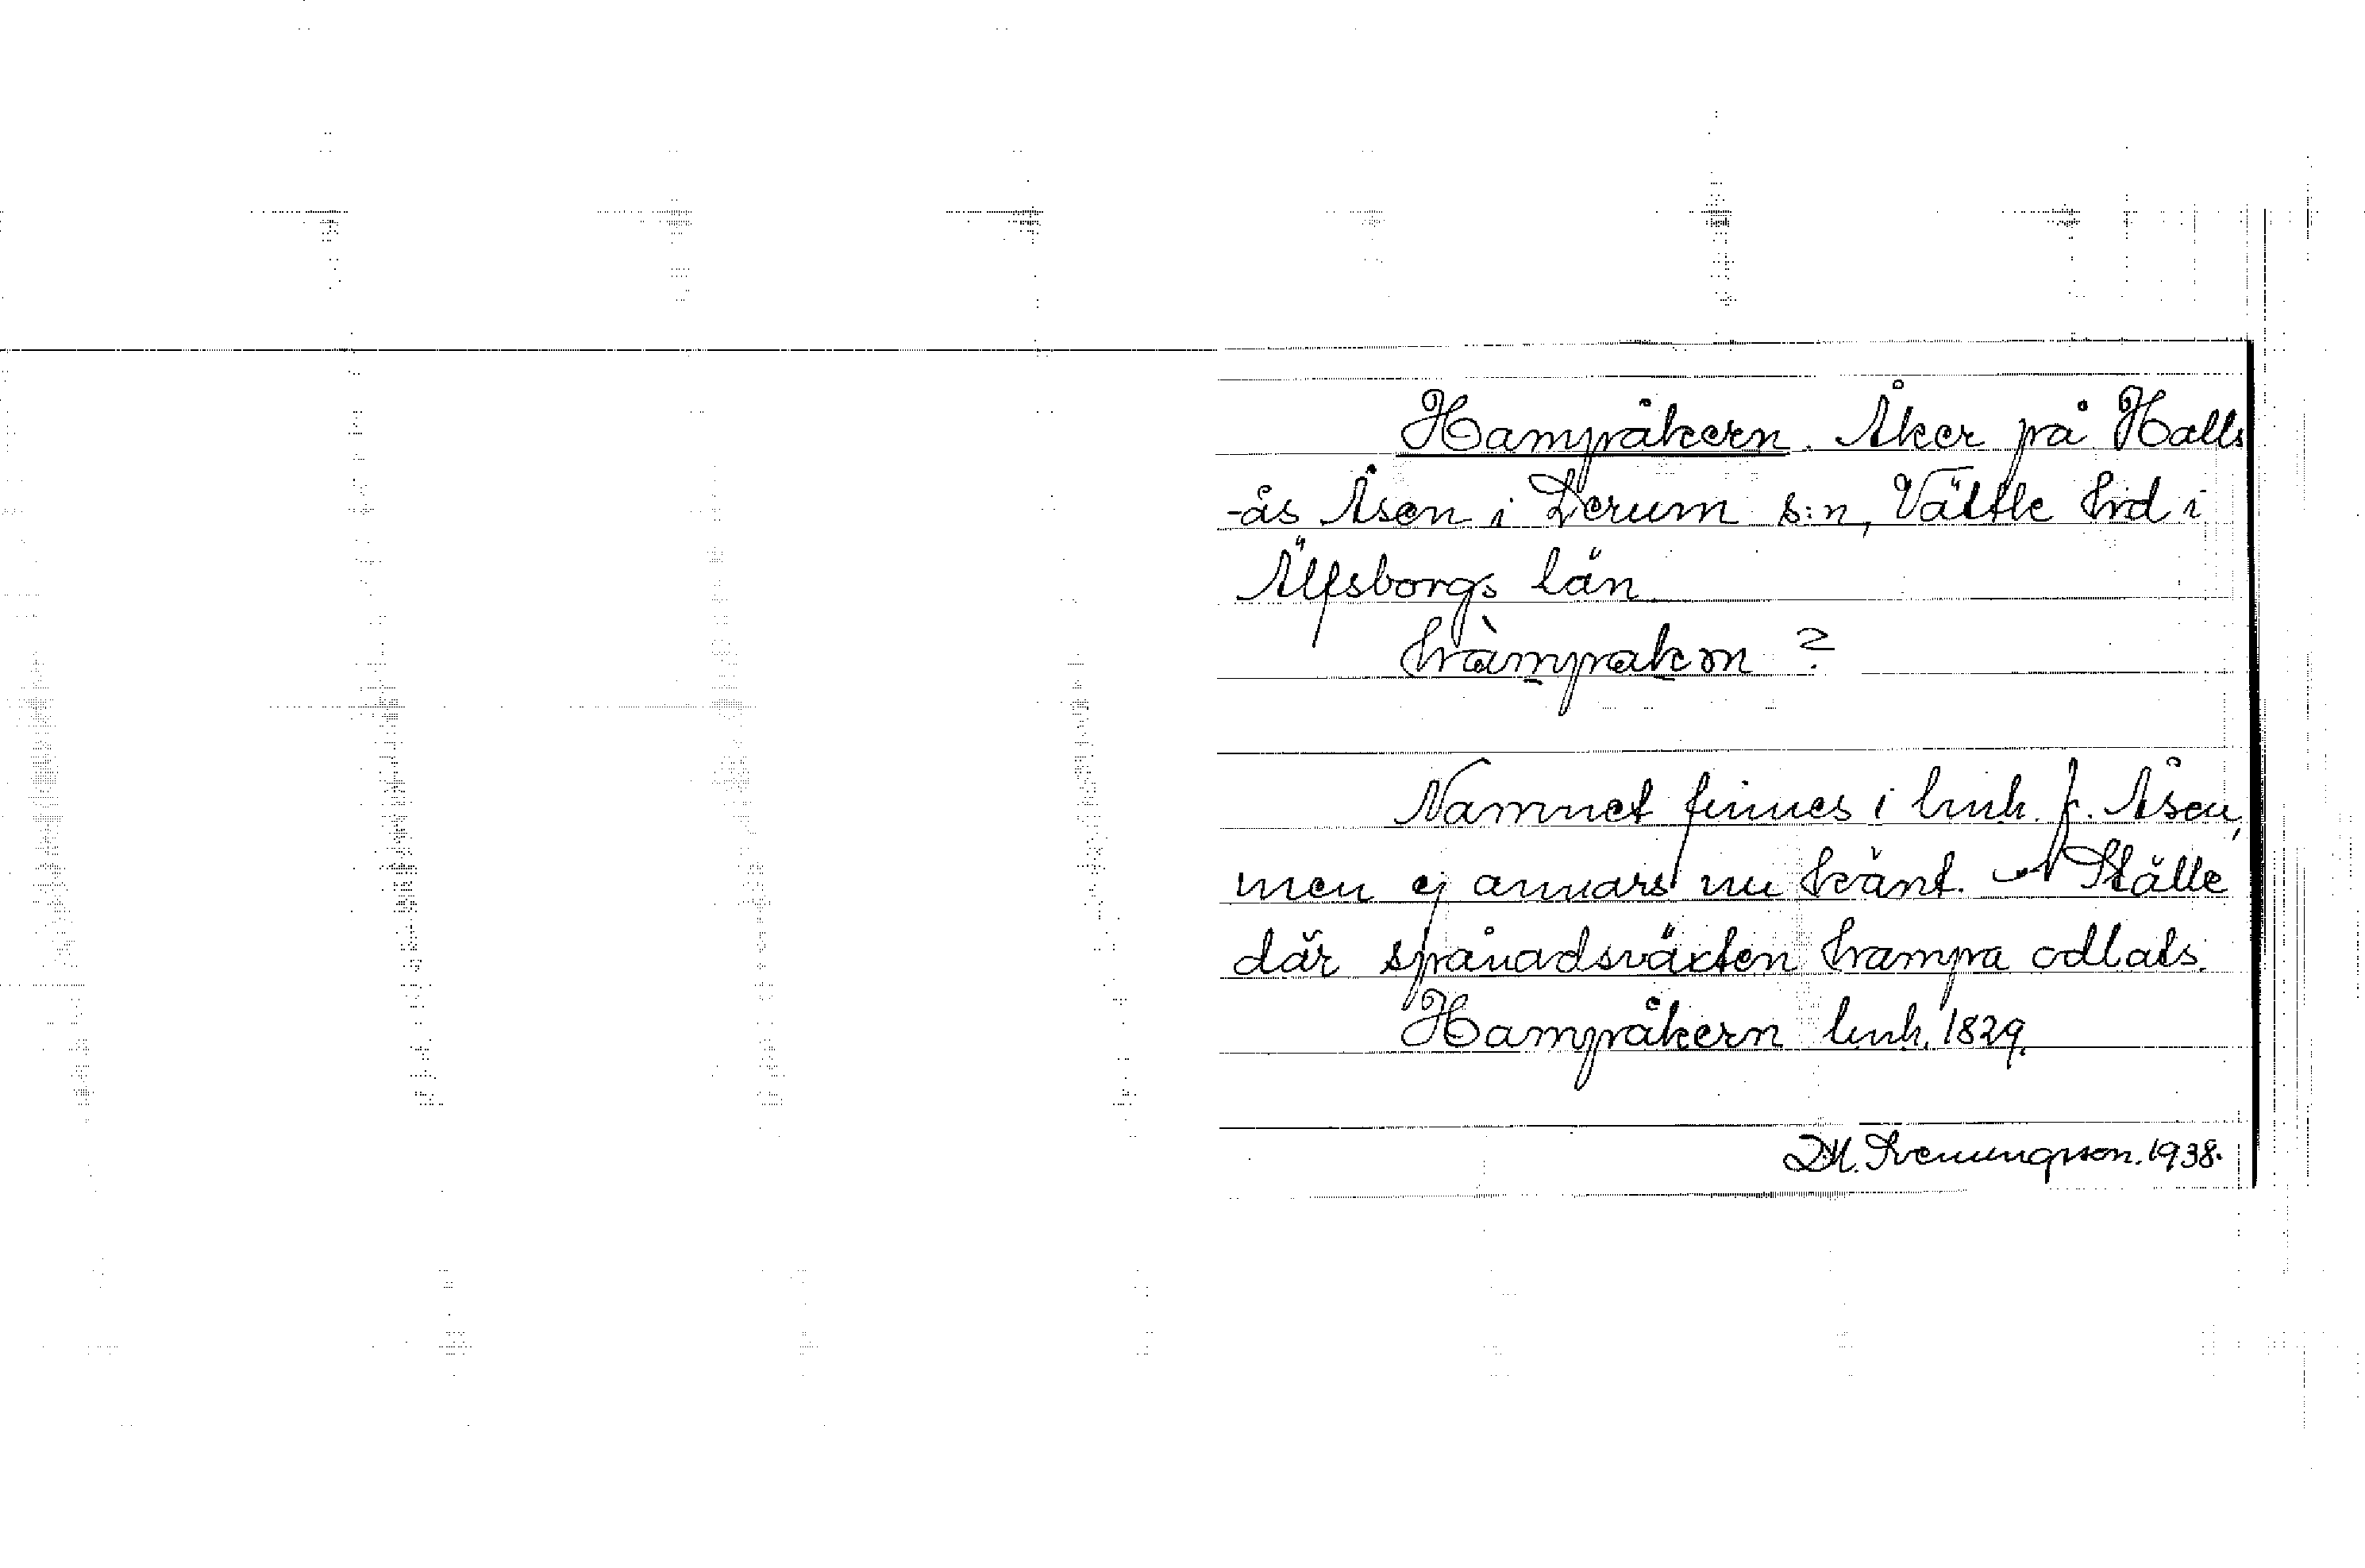 Hampåkern. Åker på Halls
-ås Åsen i Lerum s:n, Vättle hd i
Älfsborgs län
hàmpakɷn ?
Namnet finnes i lmh. f. Åsen,
men ej annars nu känt. Ställe
där spånadsväxten hampa odlats.
Hampåkern lmh. 1829.
D.M. Svenungsson. 1938.